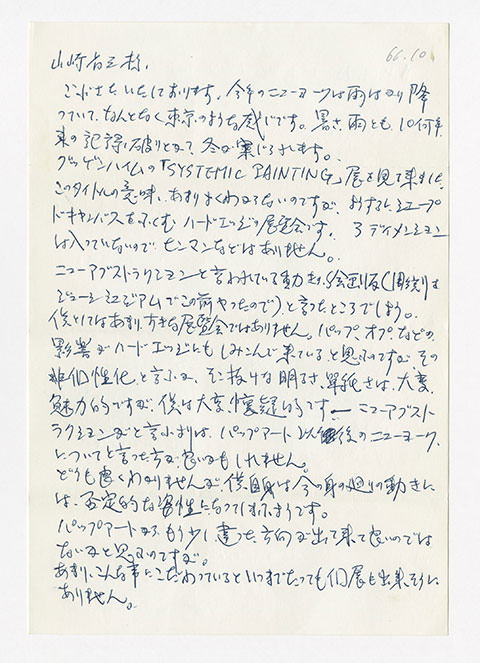 66.10
山崎省三様、
ごぶさたいたしております。今年のニューヨークは雨ばかり降
っていて、なんとなく東京のような感じです。暑さ、雨とも、10何年
来の記録破りとかで、冬が案じられます。
グッゲンハイムの「SYSTEMIC PAINTING」展を見て来ました。
このタイトルの意味、あまりよくわからないのですが、ようするにシェープ
ドキャンバスをふくむ ハードエッジの展覧会です。 3ディメンション
は入っていないので、センマンなどはありません。
ニューアブストラクションと言われている動きの、絵画版(彫刻は
ジューシュミュジアムでこの前やったので)と言ったところでしょう。
僕としてはあまり好きな展覧会ではありません。パップ、オプ、などの
影響がハードエッジにもしみこんで来ていると思うのですが、その
非個性化と言うか、そこ抜けな明るさ、単純さは、大変
魅力的ですが、僕は大変、懐疑的です ― ニューアブスト
ラクションがと言うよりは、パップアート以後のニューヨーク、
についてと言った方が良いかもしれません。
どうも良くわかりませんが、僕自身は今の身の廻りの動きに
は、否定的な姿性になってしまうようです。
パップアートから、もう少し違った方向が出て来て良いのでは
ないかと思うのですが。
あまり、こんな事にこだわっているといつまでたっても個展も出来そうに
ありません。